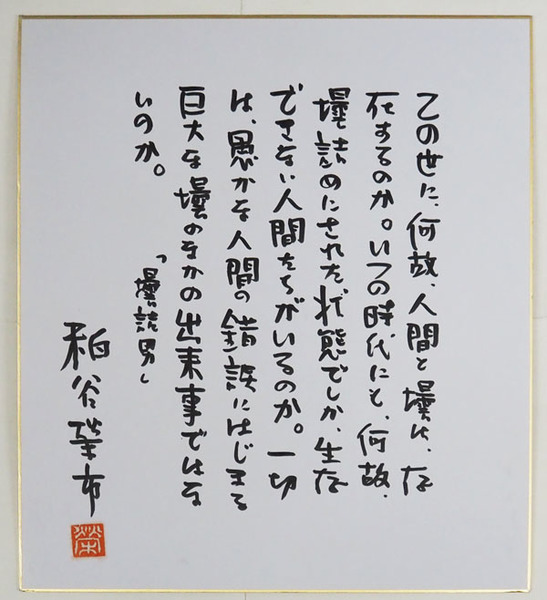 この世に、何故、人間と壜は、存
在するのか。いつの時代にも、何故、
壜詰めにされた状態でしか、生存
できない人間たちがいるのか。一切
は、愚かな人間の錯誤にはじまる
巨大な壜のなかの出来事ではな
いのか。
「壜詰男」
粕谷栄市
榮